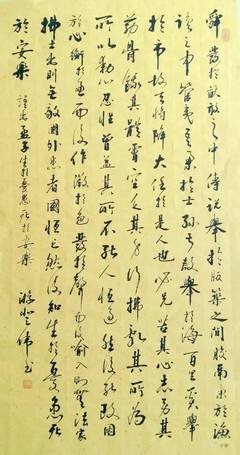 舜發於畎畝之中傅説舉於版築之間膠鬲舉於漁
鹽之中管夷吾舉於士孫叔敖舉於海百里奚舉
於市故天將降大任於是人也必先苦其心志勞其
筋骨餓其體膚空乏其身行拂亂其所為
所以動心忍性曾益其所不能人恒過然後能改困
於心衡於慮而後作徵於色發於聲而後喻入則無法家
拂士出則無敵國外患者國恒亡然後知生於憂患死
於安樂 孟子生於憂患死於安樂
游 偉书